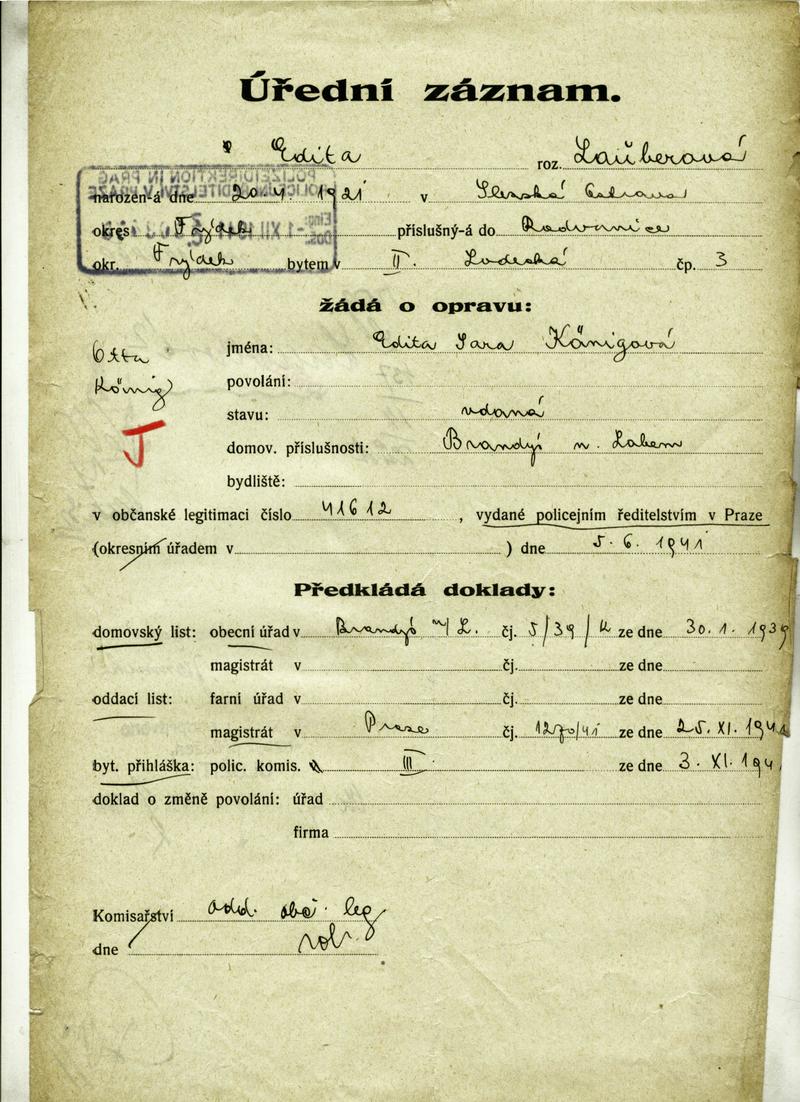 Úřední záznam.
Edita roz. Lauberová
narozen-á dne 20.4.1921 v Slezská Ostrava
okres Frýdek příslušný-á do Radvanice
okr. Frýdek bytem v II. Lodecká čp. 3
žádá o opravu:
Otto
König
J
jména: Edita Sara Königová
povolání:
stavu: vdaná
domov. příslušnosti: Brandýs n. Labem
bydliště:
v občanské legitimaci číslo 41612, vydané policejním ředitelstvím v Praze
(okresním úřadem v ) dne 5.6.1941
Předkládá doklady:
domovský list: obecní úřad v Brandýs n/L. čj. 5/39/ ze dne 30.1.1939
magistrát v čj. ze dne
oddací list: farní úřad v čj. ze dne
magistrát v Praze čj. 1270/41 ze dne 25.XI.1941
byt. přihláška: polic. komis. III ze dne 3.XI.194
doklad o změně povolání: úřad
firma
Komisařství odd. obč. leg
dne